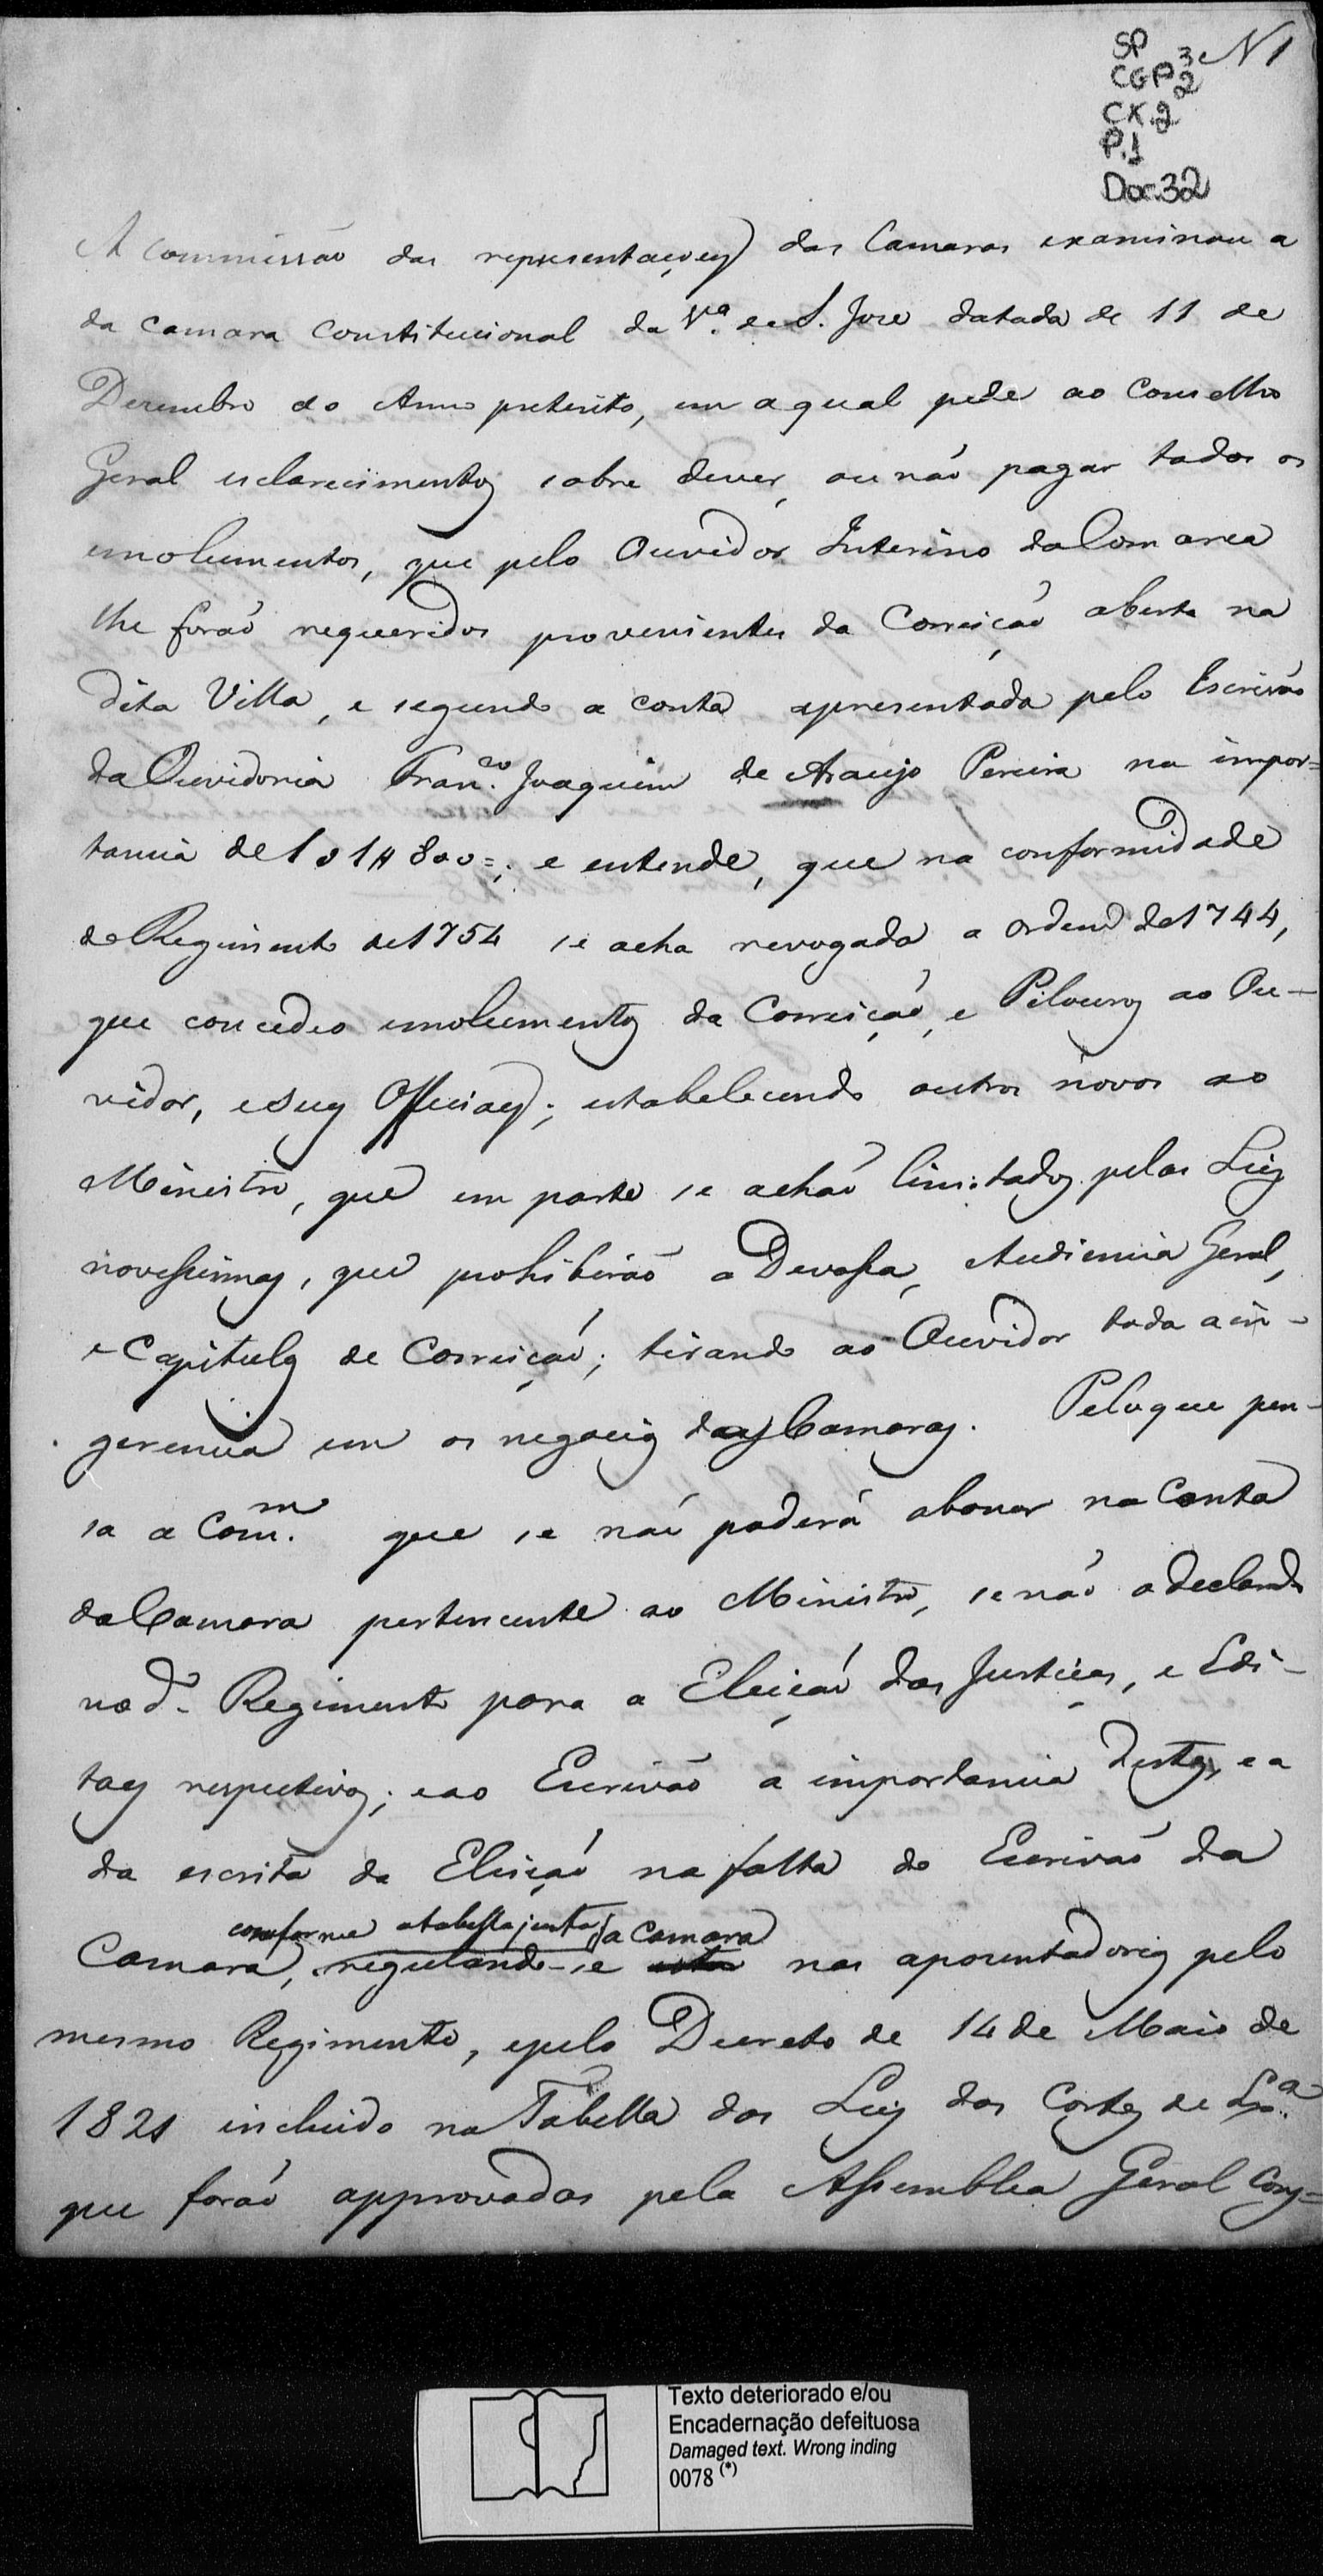 SP
CGP 3 2
CX.2
P.1
Doc.32
N 1
A Commissão das representaçoes das Camaras examinou a
da Camara Constitucional da Vª. de S. Jose datada de 11 de
Dezembro do Anno preterito, em a qual pede ao Conselho
Geral esclarecimentos sobre dever, ou não pagar todos os
emolumentos, que pelo Ouvidor Interino da Comarca
lhe forão requeridos provenientes da Correição aberta na
dita Villa, e segundo a conta apresentada pelo Escrivão
da Ouvidoria Fran.co Joaquim de Araujo Pereira na impor=
tancia de 101#800=; e entende, que na conformidade
do Regimento de 1754 se acha revogada a ordem de 1744,
que concedeo emolumentos da Correição, e Pilouros ao Ou-
vidor, e seus Officiaes; estabelecendo outros novos ao
Ministro, que em parte se achão limitados pelas Leis
novissimas, que prohibirão a Devassa, Audiencia Geral,
e Capitulos de Correição; tirando ao Ouvidor toda a in-
gerencia em os negocios das Camaras. Pelo que pen-
sa a Com.m que se não poderá abonar na Conta
da Camara pertencente ao Ministro, se não o declarado
no d.º Regimento para a Eleição das Justiças, e Edi-
taes respectivos; e ao Escrivão a importancia destes, e a
da escrita da Eleição na falta do Escrivão da
conforme a tabella junta; a Camara
Camara, regulando-se esta nas aposentadorias pelo
mesmo Regimento, e pelo Decreto de 14 de Maio de
1821 incluido na Tabella das Leis das Cortes de Lx.ª
que forão approvadas pela Assemblea Geral Cons=
Texto deteriorado e/ou
Encadernação defeituosa
Damaged text. Wrong inding
0078 (*)